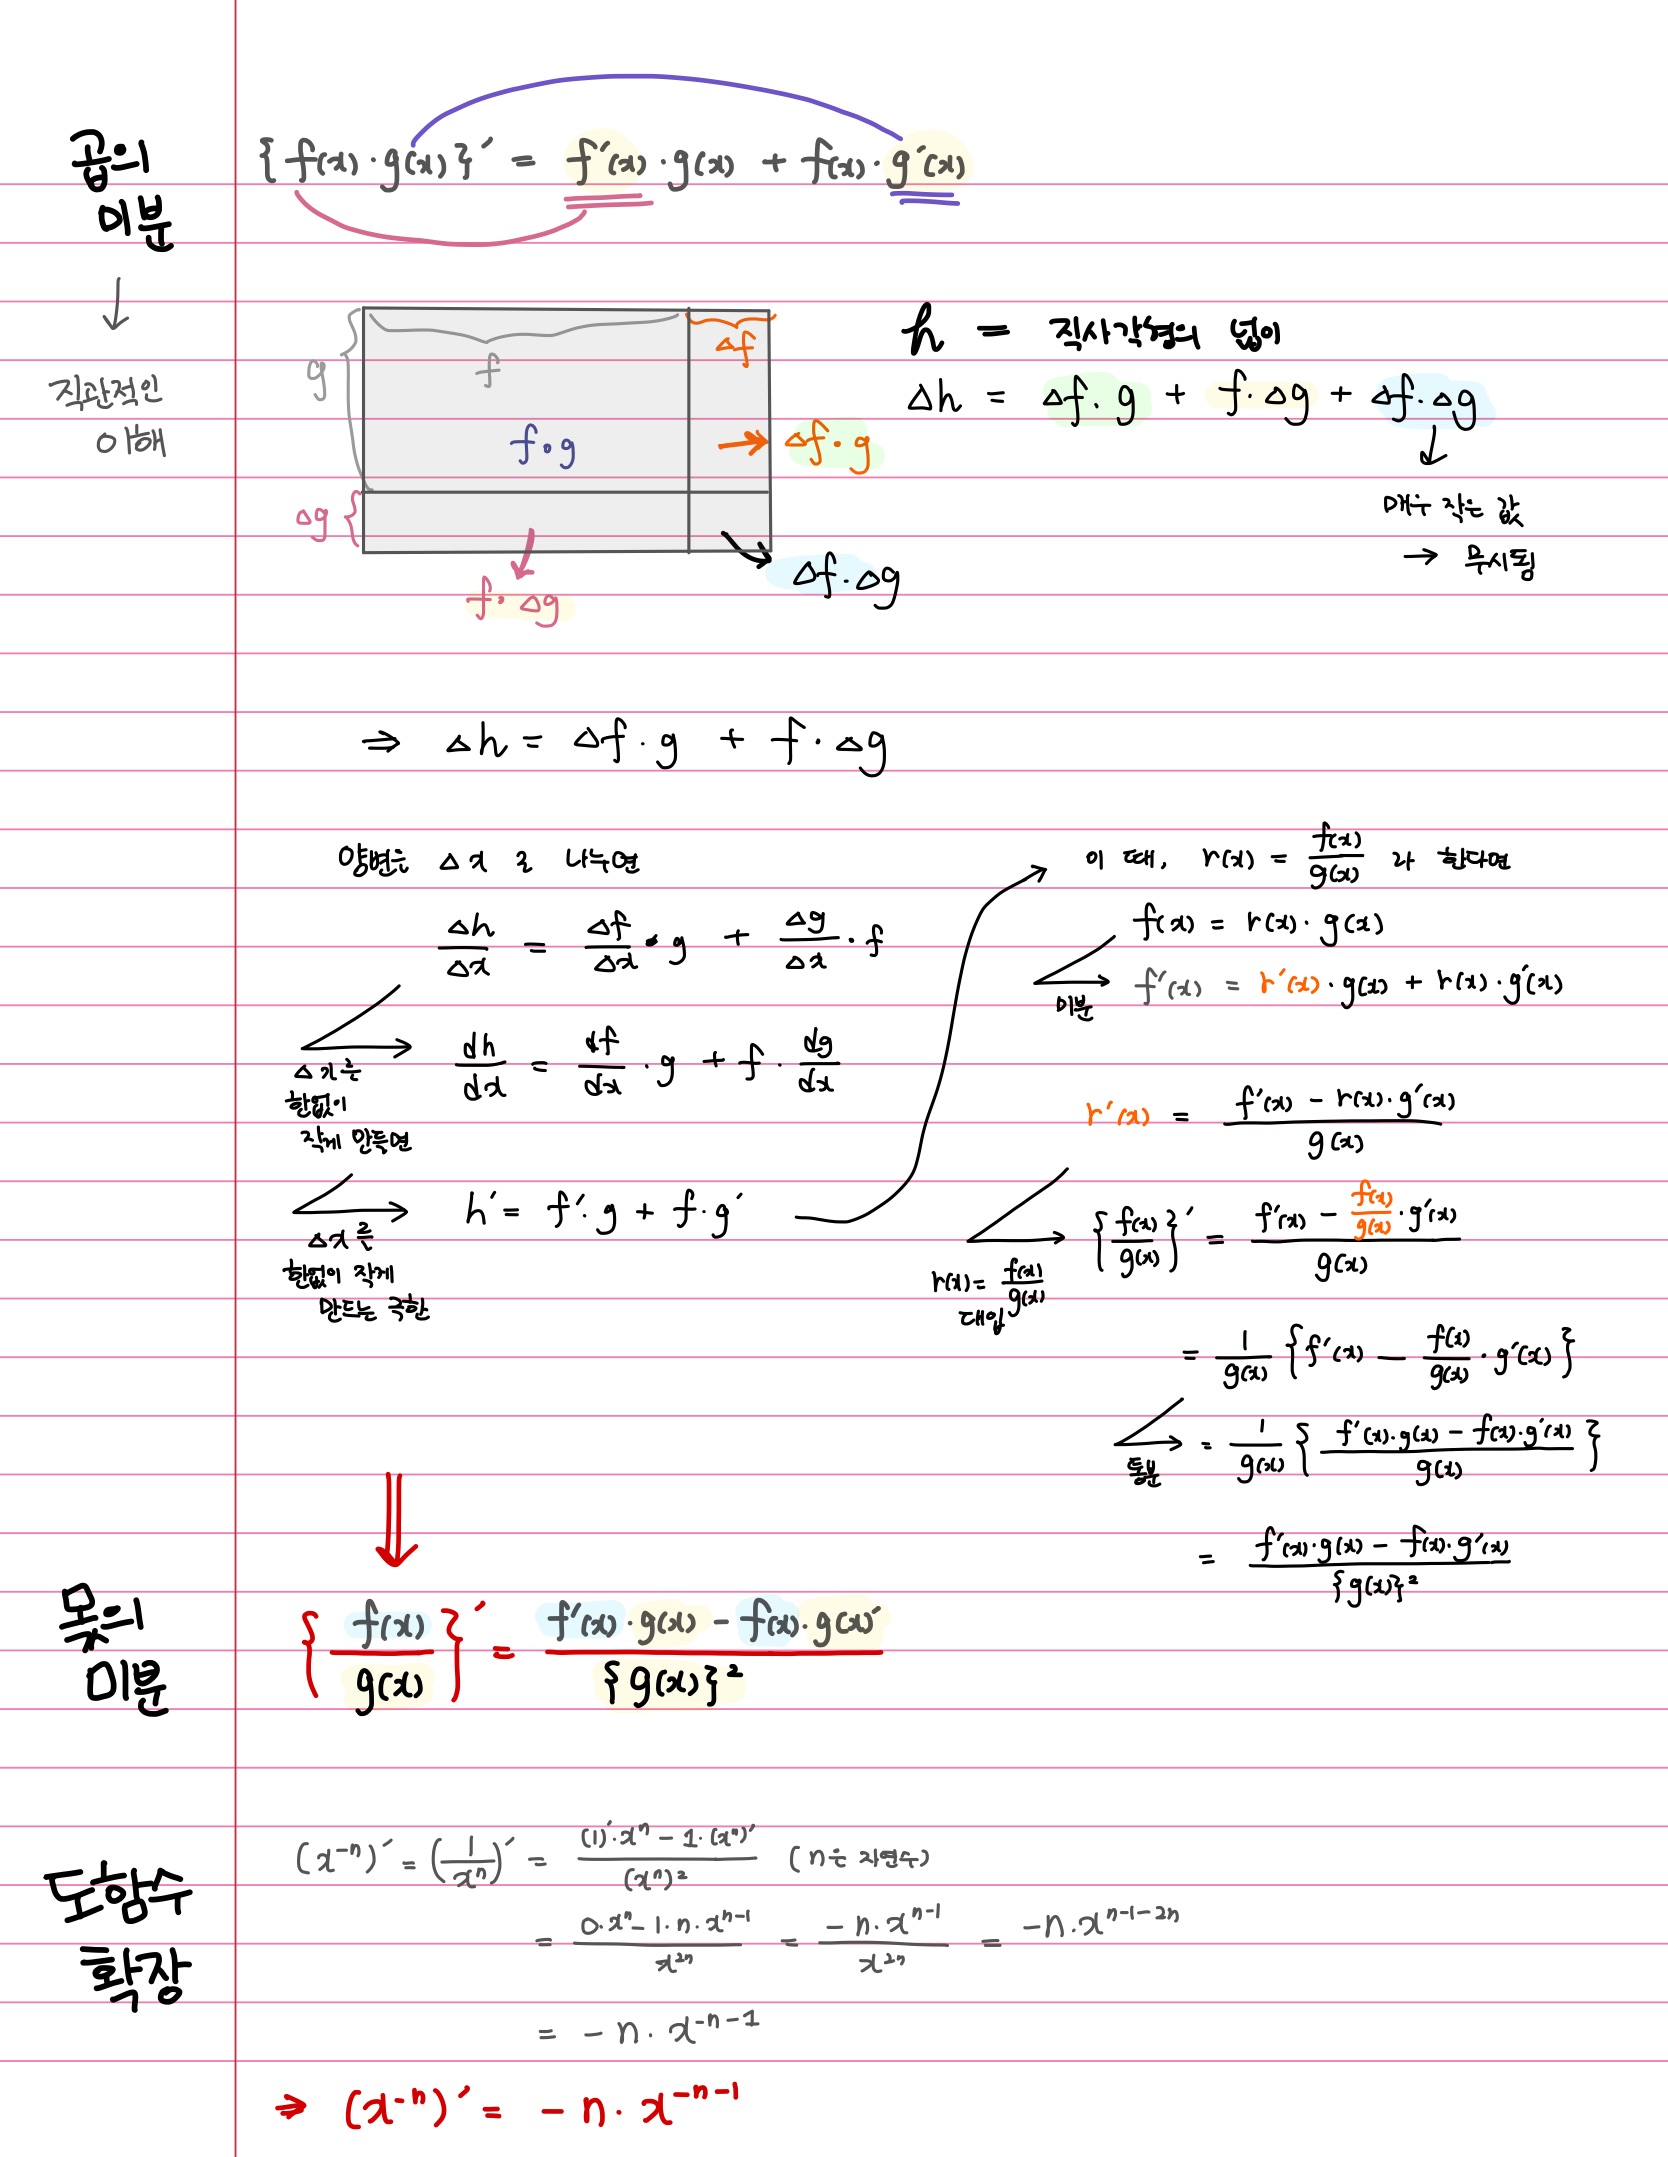 곱의
미분
{f(x)·g(x)}′ = f′(x)·g(x) + f(x)·g′(x)
↓
직관적인
이해
g
f
Δf
f·g
→ Δf·g
Δg
f·Δg
Δf·Δg
h = 직사각형의 넓이
Δh = Δf·g + f·Δg + Δf·Δg
↓
매우 작은 값
→ 무시됨
⇒ Δh = Δf·g + f·Δg
양변을 Δx로 나누면
Δh/Δx = Δf/Δx·g + Δg/Δx·f
Δx를
한없이
작게 만들면
dh/dx = df/dx·g + f·dg/dx
h′ = f′·g + f·g′
Δx를
한없이 작게
만드는 극한
이 때, r(x) = f(x)/g(x) 라 한다면
f(x) = r(x)·g(x)
미분
f′(x) = r′(x)·g(x) + r(x)·g′(x)
r′(x) = (f′(x) − r(x)·g′(x))/g(x)
r(x) = f(x)/g(x)
대입
{f(x)/g(x)}′ = (f′(x) − f(x)/g(x)·g′(x))/g(x)
= 1/g(x) {f′(x) − f(x)/g(x)·g′(x)}
통분
= 1/g(x) {(f′(x)·g(x) − f(x)·g′(x))/g(x)}
= (f′(x)·g(x) − f(x)·g′(x))/{g(x)}²
몫의
미분
{f(x)/g(x)}′ = (f′(x)·g(x) − f(x)·g(x)′)/{g(x)}²
도함수
확장
(x⁻ⁿ)′ = (1/xⁿ)′ = ((1)′·xⁿ − 1·(xⁿ)′)/(xⁿ)² (n은 자연수)
= (0·xⁿ − 1·n·xⁿ⁻¹)/x²ⁿ = (−n·xⁿ⁻¹)/x²ⁿ = −n·xⁿ⁻¹⁻²ⁿ
= −n·x⁻ⁿ⁻¹
⇒ (x⁻ⁿ)′ = −n·x⁻ⁿ⁻¹